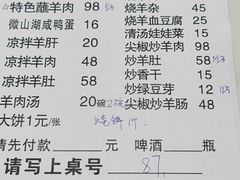 ☆特色蘸羊肉 98 烧羊杂 45
微山湖咸鸭蛋 16 烧羊血豆腐 25
凉拌羊肝 20 清汤娃娃菜 15
凉拌羊肉 58 尖椒炒羊肉 98
凉拌羊肚 48 炒羊肚 58
炒香干 15
炒绿豆芽 12
羊肉汤 20碗 2碗 尖椒炒羊肠 48
大饼1元/张 烧饼1个
请先付款 元 啤酒 瓶
请写上桌号 87.